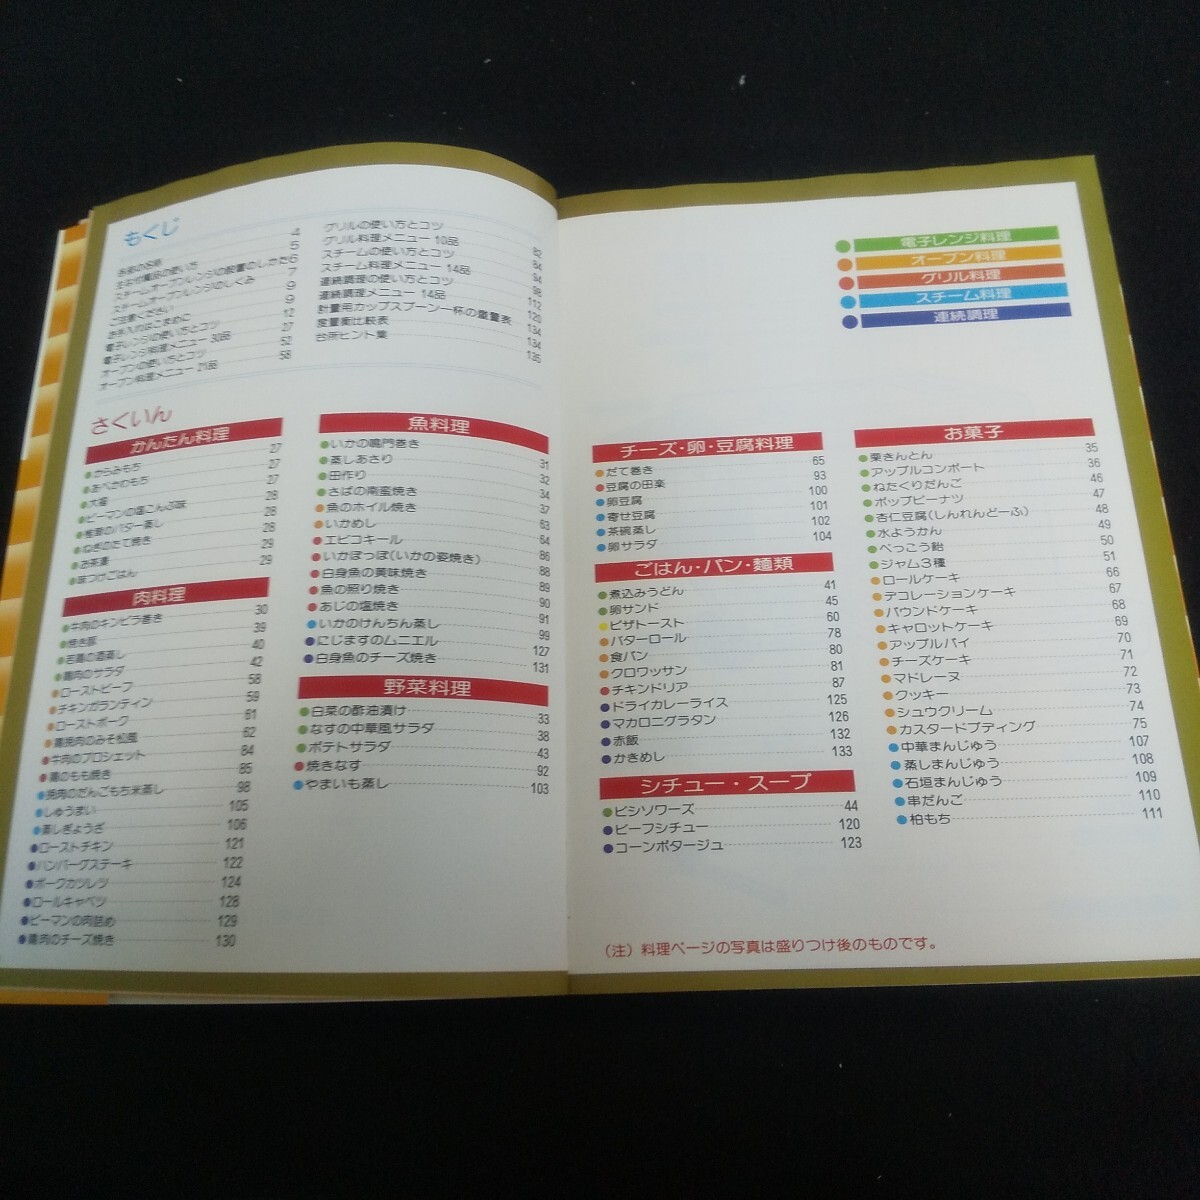 もくじ
各部の名称 4
主な付属品の使い方 5
スチームオーブンレンジの設置のしかた 6
スチームオーブンレンジのしくみ 7
ご注意ください 9
お手入れはこまめに 9
電子レンジの使い方とコツ 12
電子レンジ料理メニュー 30品 27
オーブンの使い方とコツ 52
オーブン料理メニュー 21品 58
グリルの使い方とコツ 82
グリル料理メニュー 10品 84
スチームの使い方とコツ 94
スチーム料理メニュー 14品 98
連続調理の使い方とコツ 112
連続調理メニュー 14品 120
計量用カップスプーン一杯の重量表 134
度量衡比較表 134
台所ヒント集 135
電子レンジ料理
オーブン料理
グリル料理
スチーム料理
連続調理
さくいん
かんたん料理
からみもち 27
あべかわもち 27
大福 27
ピーマンの塩こんぶ味 28
椎茸のバター蒸し 28
ねぎのたて焼き 28
お茶漬 29
味つけごはん 29
肉料理
牛肉のキンピラ巻き 30
焼き豚 39
若鶏の酒蒸し 40
鶏肉のサラダ 42
ローストビーフ 58
チキンガランティン 59
ローストポーク 61
鶏挽肉のみそ松風 62
牛肉のブロシェット 84
鶏のもも焼き 85
挽肉のだんごもち米蒸し 98
しゅうまい 105
蒸しぎょうざ 106
ローストチキン 121
ハンバーグステーキ 122
ポークカツレツ 124
ロールキャベツ 128
ピーマンの肉詰め 129
鶏肉のチーズ焼き 130
魚料理
いかの鳴門巻き 31
蒸しあさり 32
田作り 34
さばの南蛮焼き 37
魚のホイル焼き 63
いかめし 64
エビコキール 86
いかぽっぽ(いかの姿焼き) 88
白身魚の黄味焼き 89
魚の照り焼き 90
あじの塩焼き 91
いかのけんちん蒸し 99
にじますのムニエル 127
白身魚のチーズ焼き 131
野菜料理
白菜の酢油漬け 33
なすの中華風サラダ 38
ポテトサラダ 43
焼きなす 92
やまいも蒸し 103
チーズ・卵・豆腐料理
だて巻き 65
豆腐の田楽 93
卵豆腐 100
寄せ豆腐 101
茶碗蒸し 102
卵サラダ 104
ごはん・パン・麺類
煮込みうどん 41
卵サンド 45
ピザトースト 60
バターロール 78
食パン 80
クロワッサン 81
チキンドリア 87
ドライカレーライス 125
マカロニグラタン 126
赤飯 132
かきめし 133
シチュー・スープ
ビシソワーズ 44
ビーフシチュー 120
コーンポタージュ 123
お菓子
栗きんとん 35
アップルコンポート 36
ねたくりだんご 46
ポップピーナツ 47
杏仁豆腐(しんれんどーふ) 48
水ようかん 49
べっこう飴 50
ジャム3種 51
ロールケーキ 66
デコレーションケーキ 67
パウンドケーキ 68
キャロットケーキ 69
アップルパイ 70
チーズケーキ 71
マドレーヌ 72
クッキー 73
シュウクリーム 74
カスタードプディング 75
中華まんじゅう 107
蒸しまんじゅう 108
石垣まんじゅう 109
串だんご 110
柏もち 111
(注)料理ページの写真は盛りつけ後のものです。